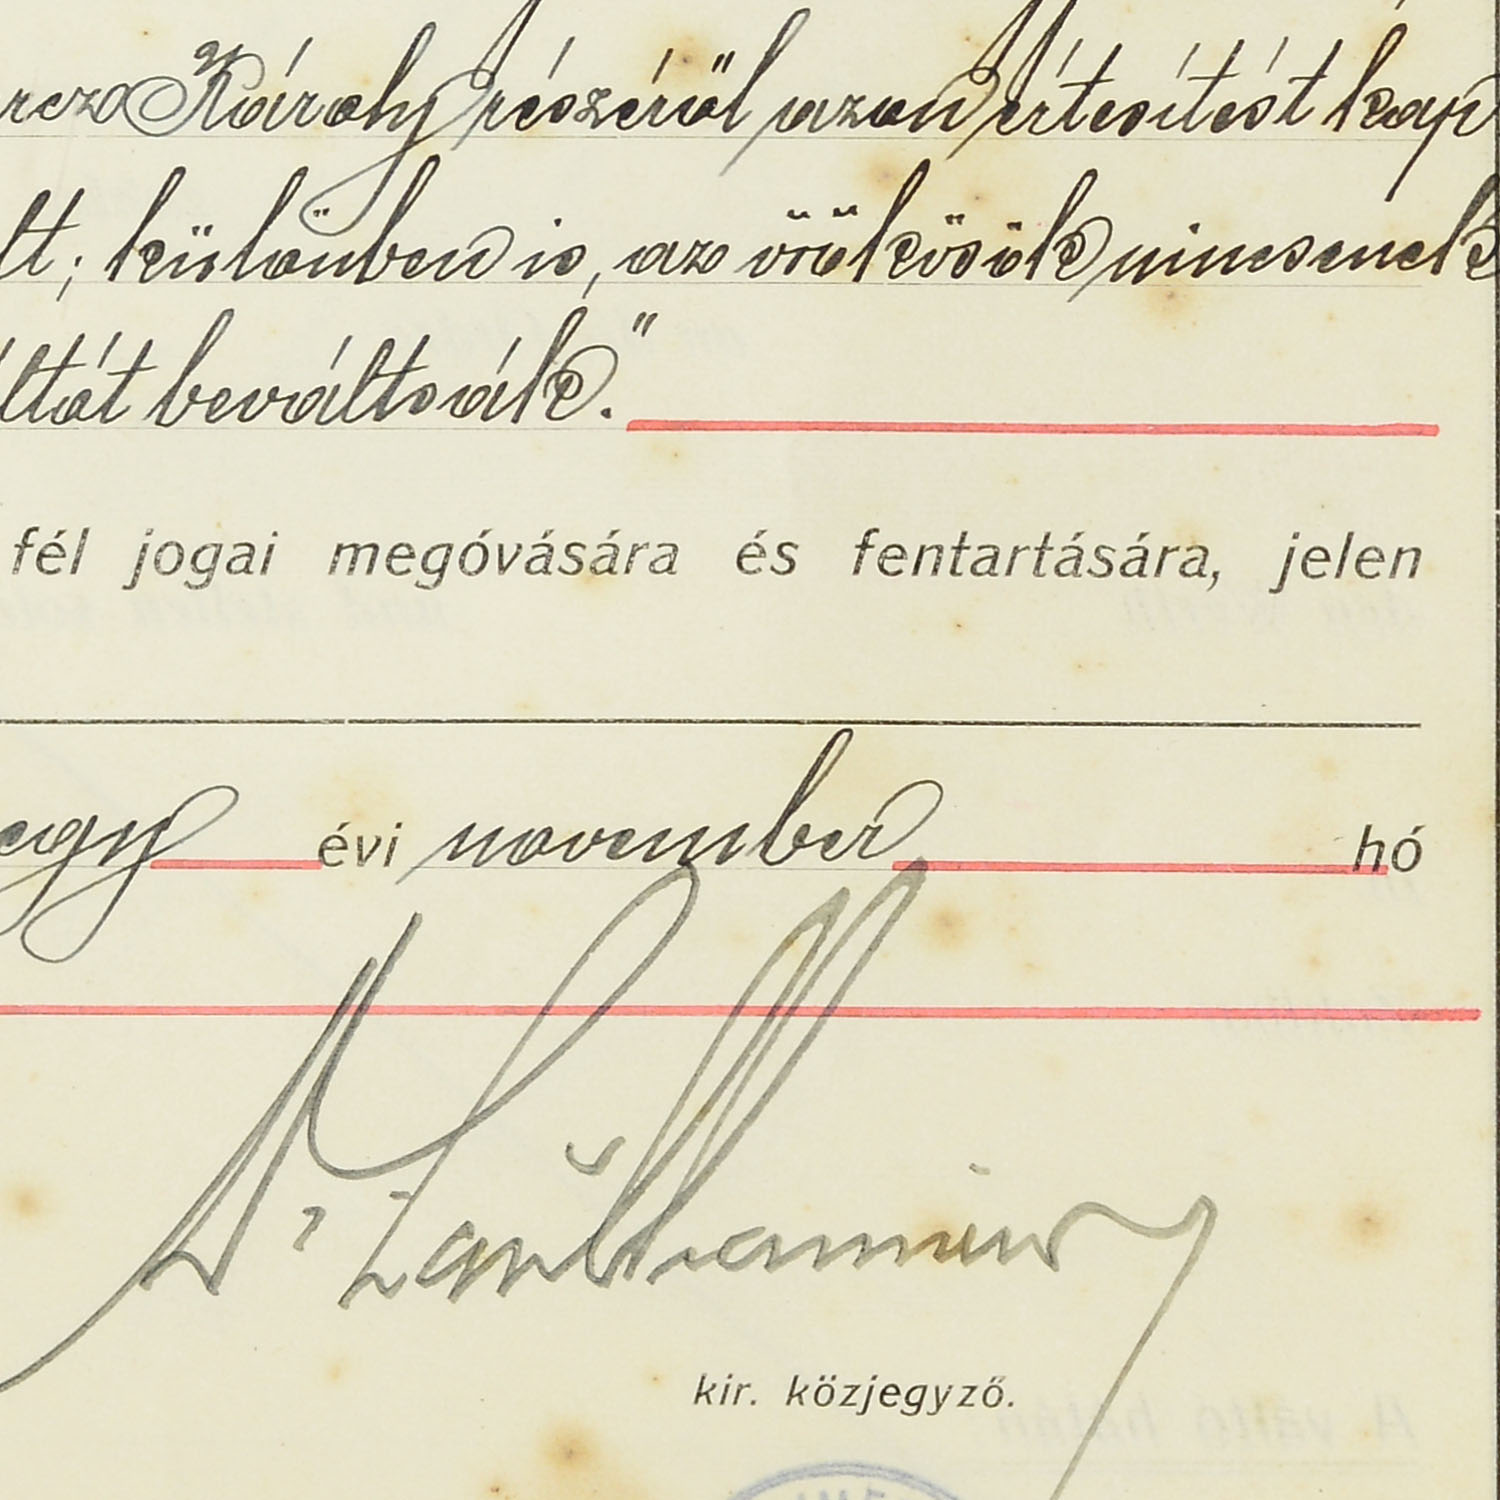 rcz Károly részéről azon értesítést kap
lt; különben is, az örökösök nincsenek
áltót beváltsák."
fél jogai megóvására és fentartására, jelen
egy évi november hó
Dr
kir. közjegyző.